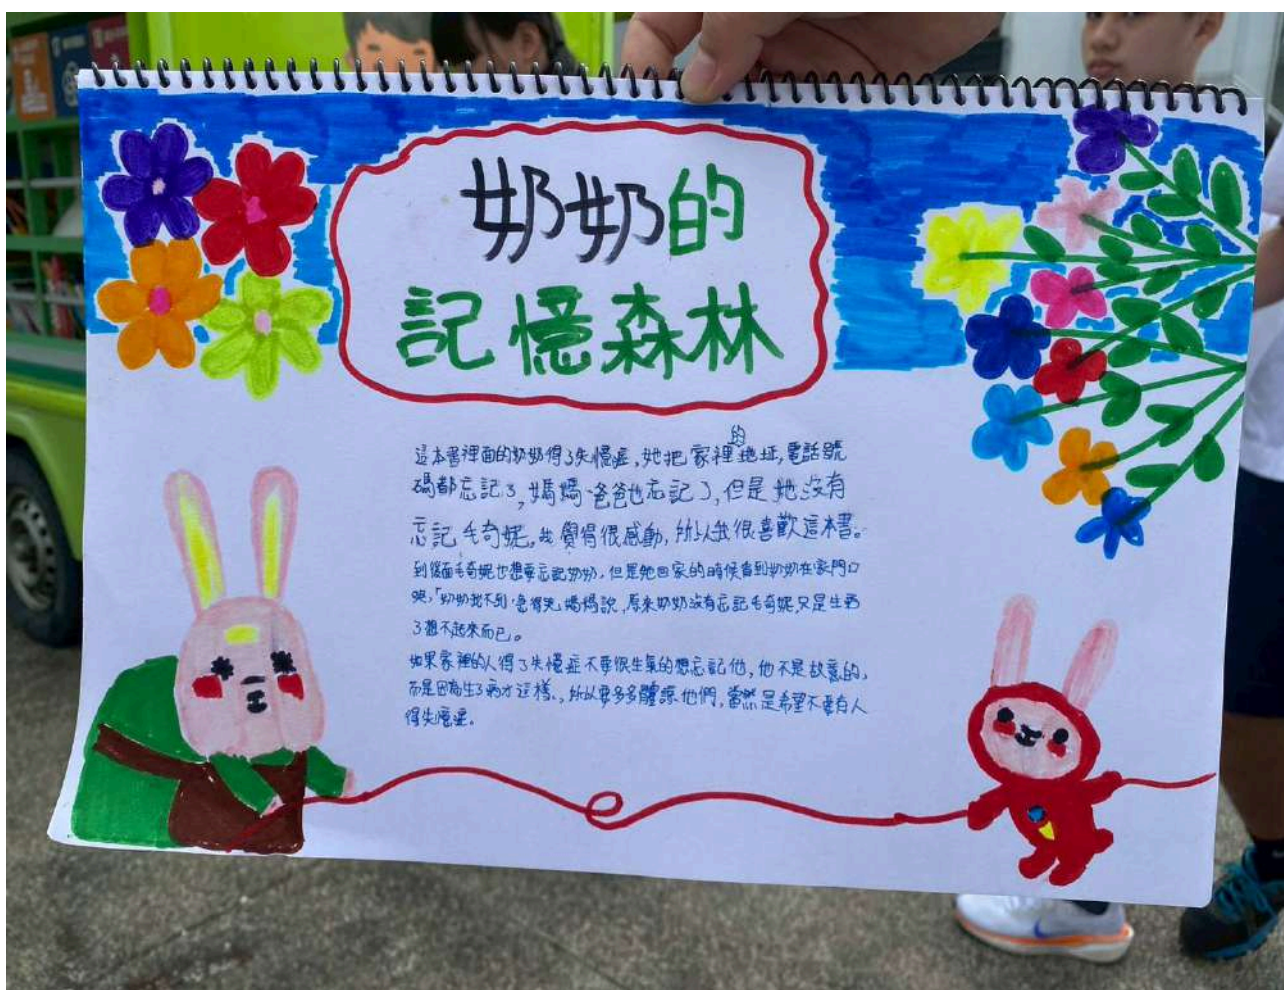 奶奶的
記憶森林
這本書裡面的奶奶得了失憶症,她把家裡的地址,電話號
碼都忘記了,媽媽、爸爸也忘記了,但是她沒有
忘記毛奇妮。我覺得很感動,所以我很喜歡這本書。
到後面毛奇妮也想要忘記奶奶,但是她回家的時候看到奶奶在家門口
哭,「奶奶找不到 急得哭」媽媽說,原來奶奶沒有忘記毛奇妮只是生病
了想不起來而已。
如果家裡的人得了失憶症不要很生氣的想忘記他,他不是故意的,
而是因為生了病才這樣、,所以要多多體諒他們,當然是希望不要有人
得失憶症。